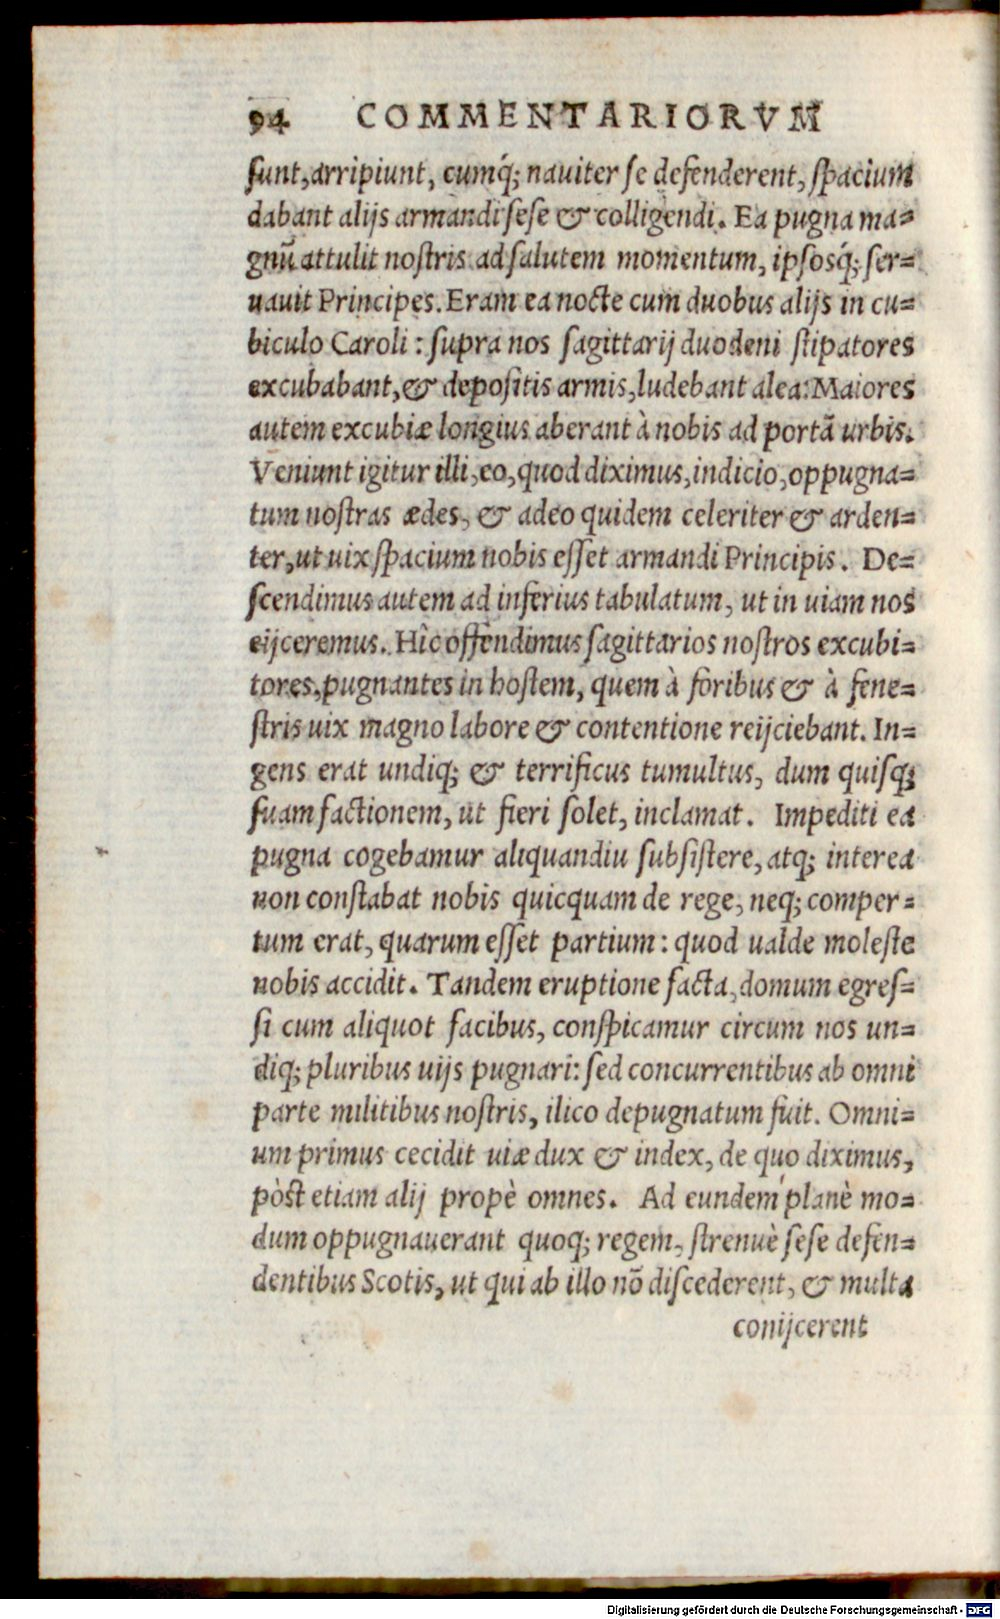 94 COMMENTARIORVM
sunt, arripiunt, cumq́; nauiter se defenderent, spacium
dabant alijs armandi sese & colligendi. Ea pugna ma=
gnũ attulit nostris ad salutem momentum, ipsosq́; ser=
uauit Principes. Eram ea nocte cum duobus alijs in cu=
biculo Caroli: supra nos sagittarij duodeni stipatores
excubabant, & depositis armis, ludebant alea: Maiores
autem excubiæ longius aberant à nobis ad portã urbis.
Veniunt igitur illi, eo, quod diximus, indicio, oppugna=
tum nostras ædes, & adeo quidem celeriter & arden=
ter, ut uix spacium nobis esset armandi Principis. De=
scendimus autem ad inferius tabulatum, ut in uiam nos
eijceremus. Hîc offendimus sagittarios nostros excubi=
tores, pugnantes in hostem, quem à foribus & à fene=
stris uix magno labore & contentione reijciebant. In=
gens erat undiq; & terrificus tumultus, dum quisq;
suam factionem, ut fieri solet, inclamat. Impediti ea
pugna cogebamur aliquandiu subsistere, atq; interea
non constabat nobis quicquam de rege, neq; comper=
tum erat, quarum esset partium: quod ualde moleste
nobis accidit. Tandem eruptione facta, domum egres=
si cum aliquot facibus, conspicamur circum nos un=
diq; pluribus uijs pugnari: sed concurrentibus ab omni
parte militibus nostris, ilico depugnatum fuit. Omni=
um primus cecidit uiæ dux & index, de quo diximus,
pòst etiam alij propè omnes. Ad eundem planè mo=
dum oppugnauerant quoq; regem, strenuè sese defen=
dentibus Scotis, ut qui ab illo nõ discederent, & multa
conijcerent
Digitalisierung gefördert durch die Deutsche Forschungsgemeinschaft - DFG